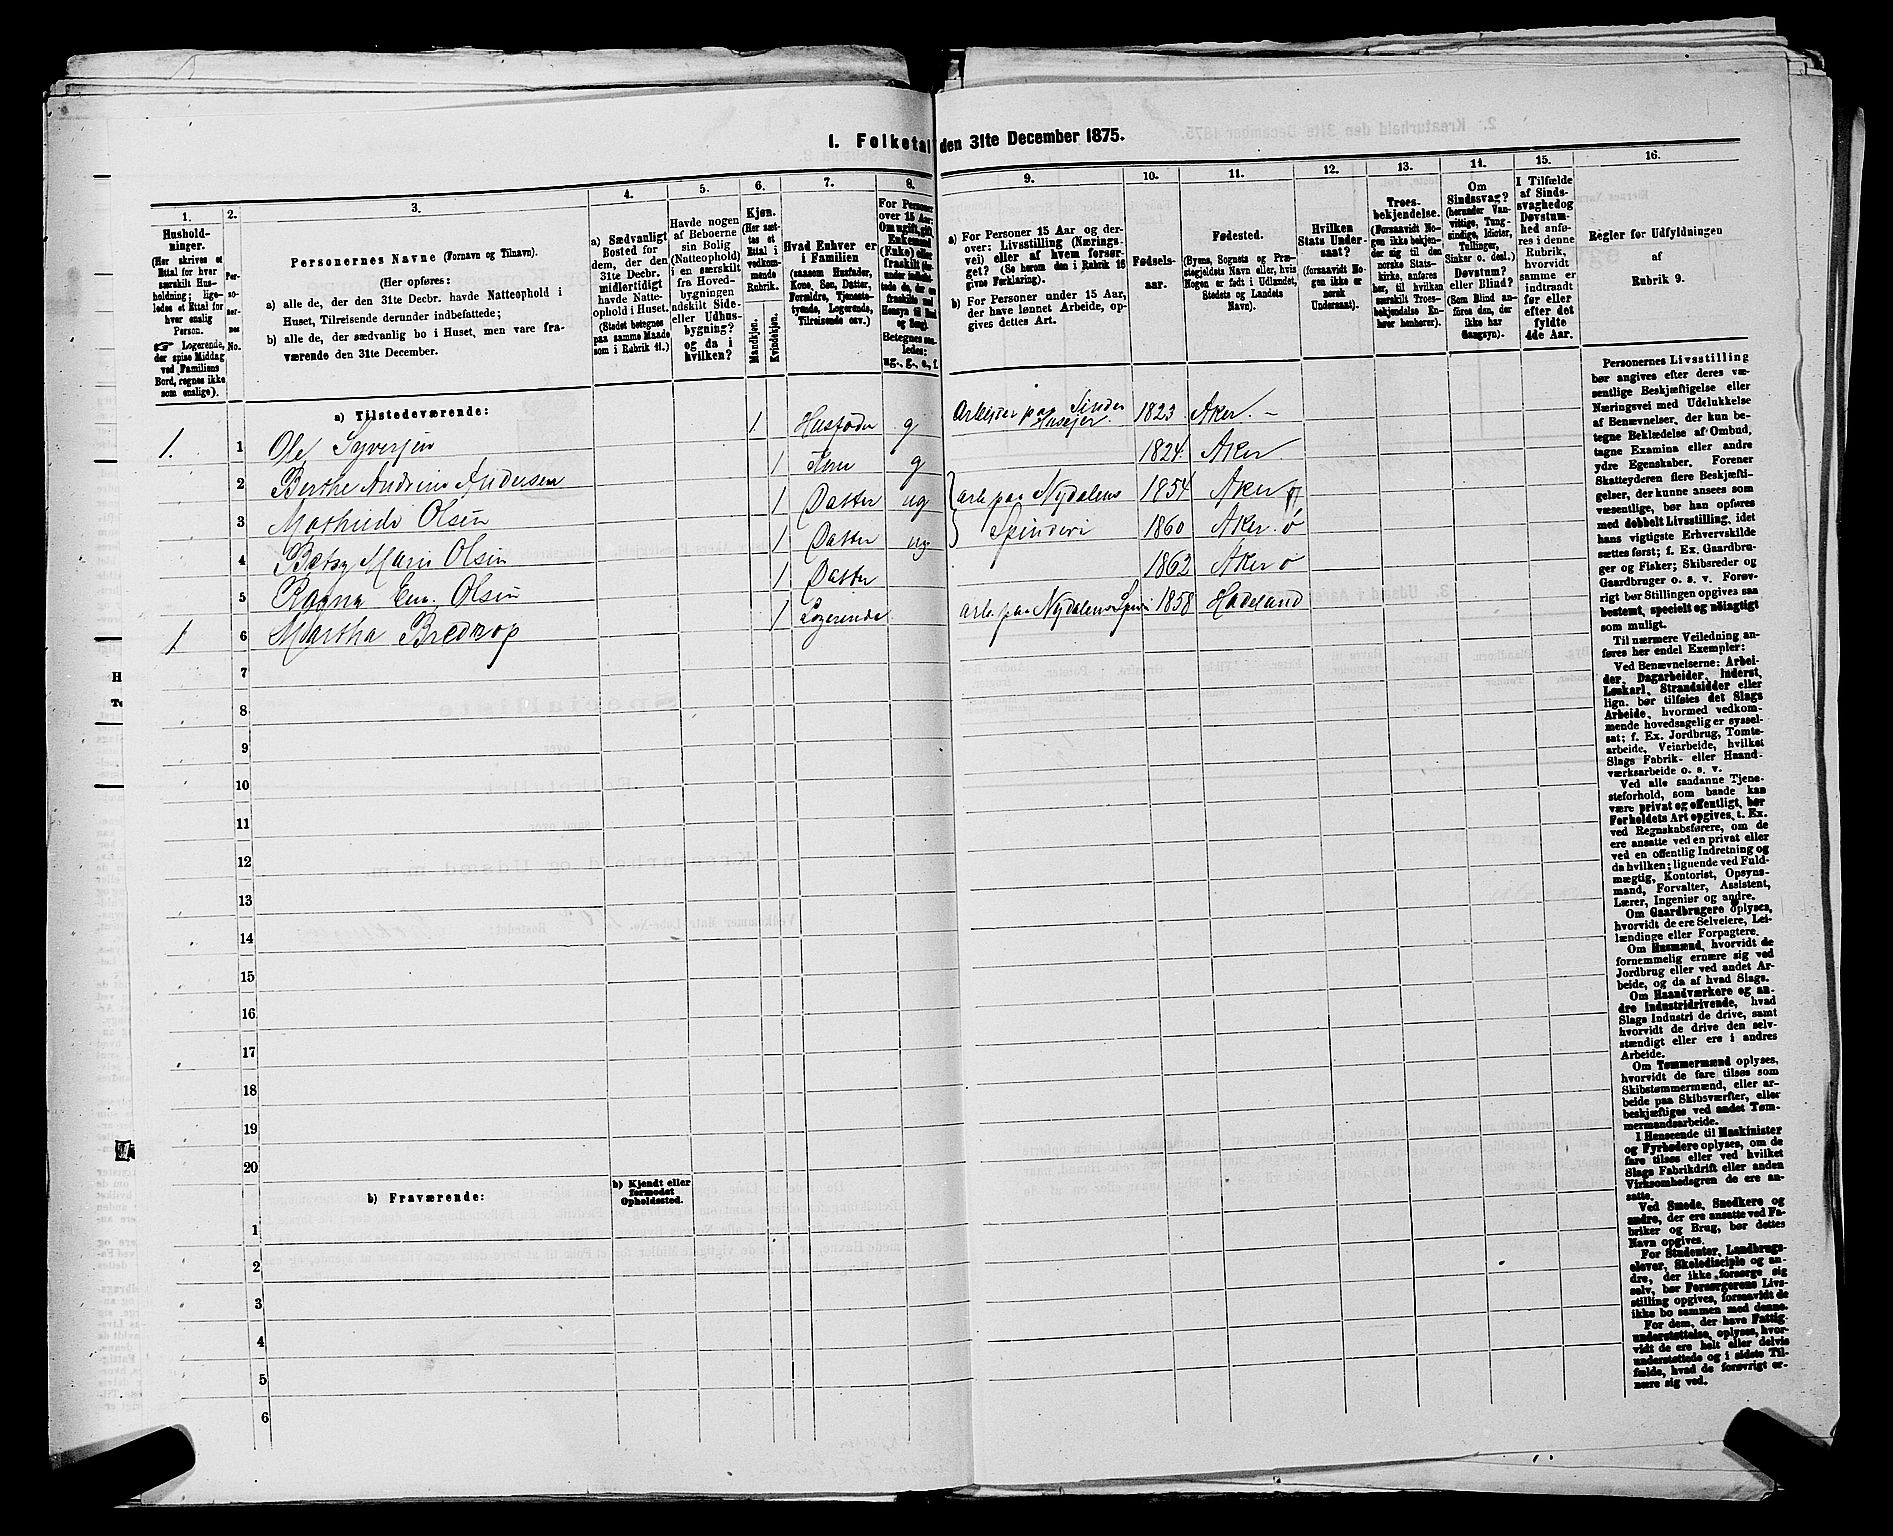 1. Folketal den 31te December 1875.
1.
2.
3.
4.
5.
6.
7.
8.
9.
10.
11.
12.
13.
14.
15.
16.
Hushold-
ninger.
(Her skrives et
Ettal for hver
særskilt Hus-
holdning; lige-
ledes et Ettal for
hver enslig
Person.
☞ Logerende,
der spise Middag
ved Familiens
Bord, regnes ikke
som enslige).
Per-
so-
ner-
nes
No.
Personernes Navne (Fornavn og Tilnavn).
(Her opføres:
a) alle de, der den 31te Decbr. havde Natteophold i
Huset, Tilreisende derunder indbefattede;
b) alle de, der sædvanlig bo i Huset, men vare fra-
værende den 31te December.
a) Sædvanligt
Bosted for
dem, der den
31te Decbr.
midlertidigt
havde Natte-
ophold i Huset.
(Stedet betegnes
paa samme Maade
som i Rubrik 11.)
Havde nogen
af Beboerne
sin Bolig
(Natteophold)
i en særskilt
fra Hoved-
bygningen
adskilt Side-
eller Udhus-
bygning?
og da i
hvilken?
Kjøn.
(Her sæt-
tes et
Ettal i
vedkom-
mende
Rubrik.
Mandkjøn.
Kvindekjøn.
Hvad Enhver er
i Familien
(saasom Husfader,
Kone, Søn, Datter,
Forældre, Tjeneste-
tyende, Logerende,
Tilreisende osv.)
For Personer
over 15 Aar:
Om ugift, gift,
Enkemand
(Enke) eller
fraskilt
Betegnes saa-
ledes:
ug., g., e., f.
a) For Personer 15 Aar og der-
over: Livsstilling (Nærings-
vei) eller af hvem forsør-
get? (Se herom den i Rubrik 16
givne Forklaring).
b) For Personer under 15 Aar,
der have lønnet Arbeide, op-
gives dettes Art.
Fødsels-
aar.
Fødested.
(Byens, Sognets og Præ-
stegjeldets Navn eller, hvis
Nogen er født i Udlandet,
Stedets og Landets
Navn).
Hvilken
Stats Under-
saat?
(forsaavidt No-
gen ikke er
norsk
Undersaat).
Troes-
bekjendelse.
(Forsaavidt No-
gen ikke bekjen-
der sig til den
norske Stats-
kirke, anføres
her, til hvilken
særskilt Troes-
bekjendelse En-
hver henhører).
Om
Sindssvag?
(herunder Van-
vittige, Tung-
sindige, Idioter,
Tullinger,
Sinker o. desl.)
Døvstum?
eller Blind?
(Som Blind an-
føres den, der
ikke har
Gangsyn).
I Tilfælde
af Sinds-
svaghed og
Døvstum-
hed anfø-
res i denne
Rubrik,
hvorvidt
samme er
indtraadt
før eller
efter det
fyldte
4de Aar.
Regler for Udfyldningen
af
Rubrik 9.
a) Tilstedeværende:
1. 1 Ole Syversen 1 Husfader g Arbeider paa 1823 Aker. –
2 Berthe Andrine Andersen 1 Kone g 1824 Aker
3 Mathilde Olsen 1 Datter ug } arb. paa Nydalens 1854 Aker
4 Betsy Marie Olsen 1 Datter ug } Spinderi 1860 Aker ø
5 Ragna Em. Olsen 1 Datter 1862 Aker ø
1 6 Martha 1 Logerende arb. paa Nydalens Spin 1858 Hadeland
7
8
9
10
11
12
13
14
15
16
17
18
19
20
b) Fraværende:
b) Kjendt eller
formodet
Opholdssted.
1
2
3
4
5
6
Personernes Livsstilling
bør angives efter deres væ-
sentlige Beskjæftigelse eller
Næringsvei med Udelukkelse
af Benævnelser, der kun be-
tegne Beklædelse af Ombud,
tagne Examina eller andre
ydre Egenskaber. Forener
Skatteyderen flere Beskjæfti-
gelser, der kunne ansees som
væsentlige, bør han opføres
med dobbelt Livsstilling, idet
hans vigtigste Erhvervskilde
sættes først; f. Ex. Gaardbru-
ger og Fisker; Skibsreder og
Gaardbruger o. s. v. Forøv-
rigt bør Stillingen opgives saa
bestemt, specielt og nøiagtigt
som muligt.
Til nærmere Veiledning an-
føres her endel Exempler:
Ved Benævnelserne: Arbei-
der, Dagarbeider, Inderst,
Løskarl, Strandsidder eller
lign. bør tilføies det Slags
Arbeide, hvormed vedkom-
mende hovedsagelig er syssel-
sat; f. Ex. Jordbrug, Tomte-
arbeide, Veiarbeide, hvilket
Slags Fabrik- eller Haand-
værksarbeide o. s. v.
Ved alle saadanne Tjene-
steforhold, som baade kan
være privat og offentligt, bør
Forholdets Art opgives, t. Ex.
ved Regnskabsførere, om de
ere ansatte ved en privat eller
ved en offentlig Indretning og
da hvilken; lignende ved Fuld-
mægtig, Kontorist, Opsyns-
mand, Forvalter, Assistent,
Lærer, Ingeniør og andre.
Om Gaardbrugere oplyses,
hvorvidt de ere Selveiere, Lei-
lændinge eller Forpagtere.
Om Husmænd, hvorvidt de
fornemmelig ernære sig ved
Jordbrug eller ved andet Ar-
beide, og da af hvad Slags.
Om Haandværkere og an-
dre Industridrivende, hvad
Slags Industri de drive, samt
hvorvidt de drive den selv-
stændigt eller ere i andres
Arbeide.
Om Tømmermænd oplyses,
hvorvidt de fare tilsøs som
Skibstømmermænd, eller ar-
beide paa Skibsværfter, eller
beskjæftiges ved andet Tøm-
mermandsarbeide.
I Henseende til Maskinister
og Fyrbødere oplyses, om de
fare tilsøs eller ved hvilket
Slags Fabrikdrift eller anden
Virksomhedsgren de ere an-
satte.
Ved Smede, Snedkere og
andre, der ere ansatte ved Fa-
briker og Brug, bør dettes
Navn opgives.
For Studenter, Landbrugs-
elever, Skoledisciple og an-
dre, der ikke forsørge sig
selv, bør Forsørgerens Livs-
stilling opgives, forsaavidt de
ikke bo sammen med denne.
For dem, der have Fattig-
understøttelse, oplyses, hvor-
vidt de ere helt eller delvis
understøttede og i sidste Til-
fælde, hvad de forøvrigt er-
nære sig ved.